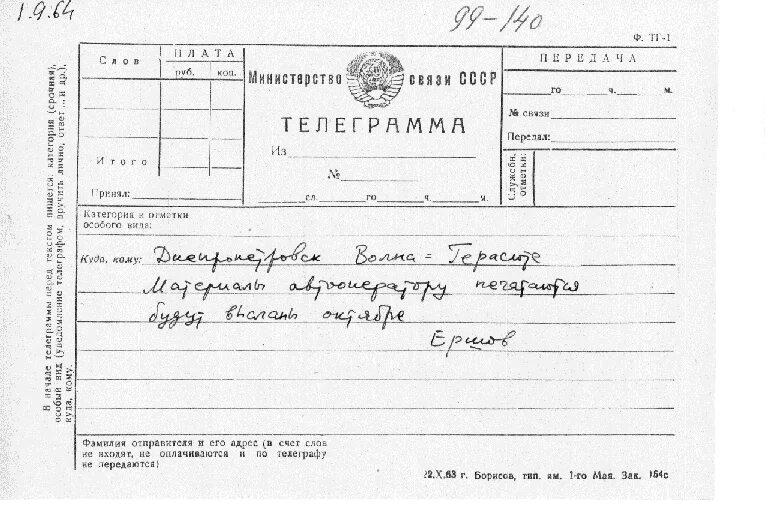 1.9.64
99-140
Ф. ТГ-1
Слов
ПЛАТА
руб. коп.
Итого
Принял:
Министерство связи СССР
ТЕЛЕГРАММА
Из
№
сл. го ч. м.
ПЕРЕДАЧА
го ч. м.
№ связи
Передал:
Служебн. отметки:
Категория и отметки
особого вида:
Куда, кому: Днепропетровск Волна = Герасюте
Материалы автооператору печатаются
будут высланы октябре
Ершов
В начале телеграммы перед текстом пишется категория (срочная),
особый вид (уведомление телеграфом, вручить лично, ответ ... и др.),
куда, кому.
Фамилия отправителя и его адрес (в счет слов
не входят, не оплачиваются и по телеграфу
не передаются)
22.X.63 г. Борисов, тип. им. 1-го Мая. Зак. 154с